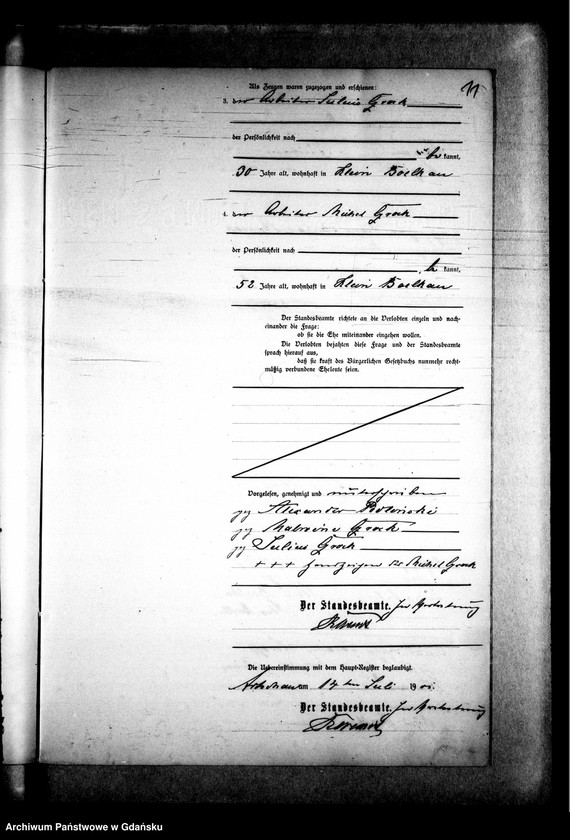 11
Als Zeugen waren zugezogen und erschienen:
3. der Arbeiter Julius Grock
der Persönlichkeit nach
be kannt,
30 Jahre alt, wohnhaft in Klein Boelkau
4. der Arbeiter Michel Grock
der Persönlichkeit nach
be kannt,
52 Jahre alt, wohnhaft in Klein Boelkau
Der Standesbeamte richtete an die Verlobten einzeln und nach-
einander die Frage:
ob sie die Ehe miteinander eingehen wollen.
Die Verlobten bejahten diese Frage und der Standesbeamte
sprach hierauf aus,
daß sie kraft des Bürgerlichen Gesetzbuchs nunmehr recht-
mäßig verbundene Eheleute seien.
Vorgelesen, genehmigt und unterschrieben
gez Alexander
gez Grock
gez Julius Grock
+ + + Handzeichen des Michel Grock
Der Standesbeamte. In Vertretung
Die Uebereinstimmung mit dem Haupt-Register beglaubigt.
am Juli 19
Der Standesbeamte. In Vertretung
Archiwum Państwowe w Gdańsku